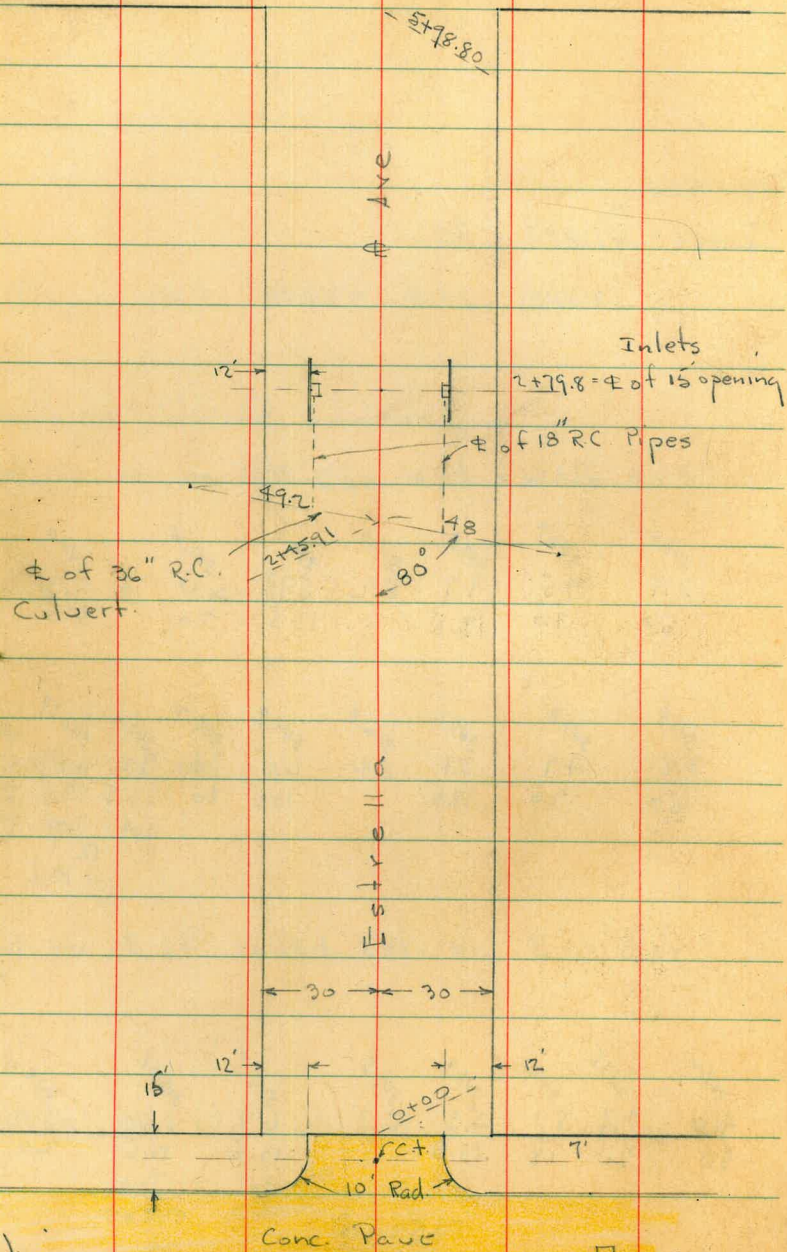 5+98.80
℄ Ave
Inlets
12'
2+79.8 = ℄ of 15' opening
℄ of 18" R.C. Pipes
49.2
48
2+45.91
80°
℄ of 36" R.C.
Culvert.
Estrella
30
30
12'
12'
15'
0+00
Ct
7'
10' Rad.
Conc. Pave